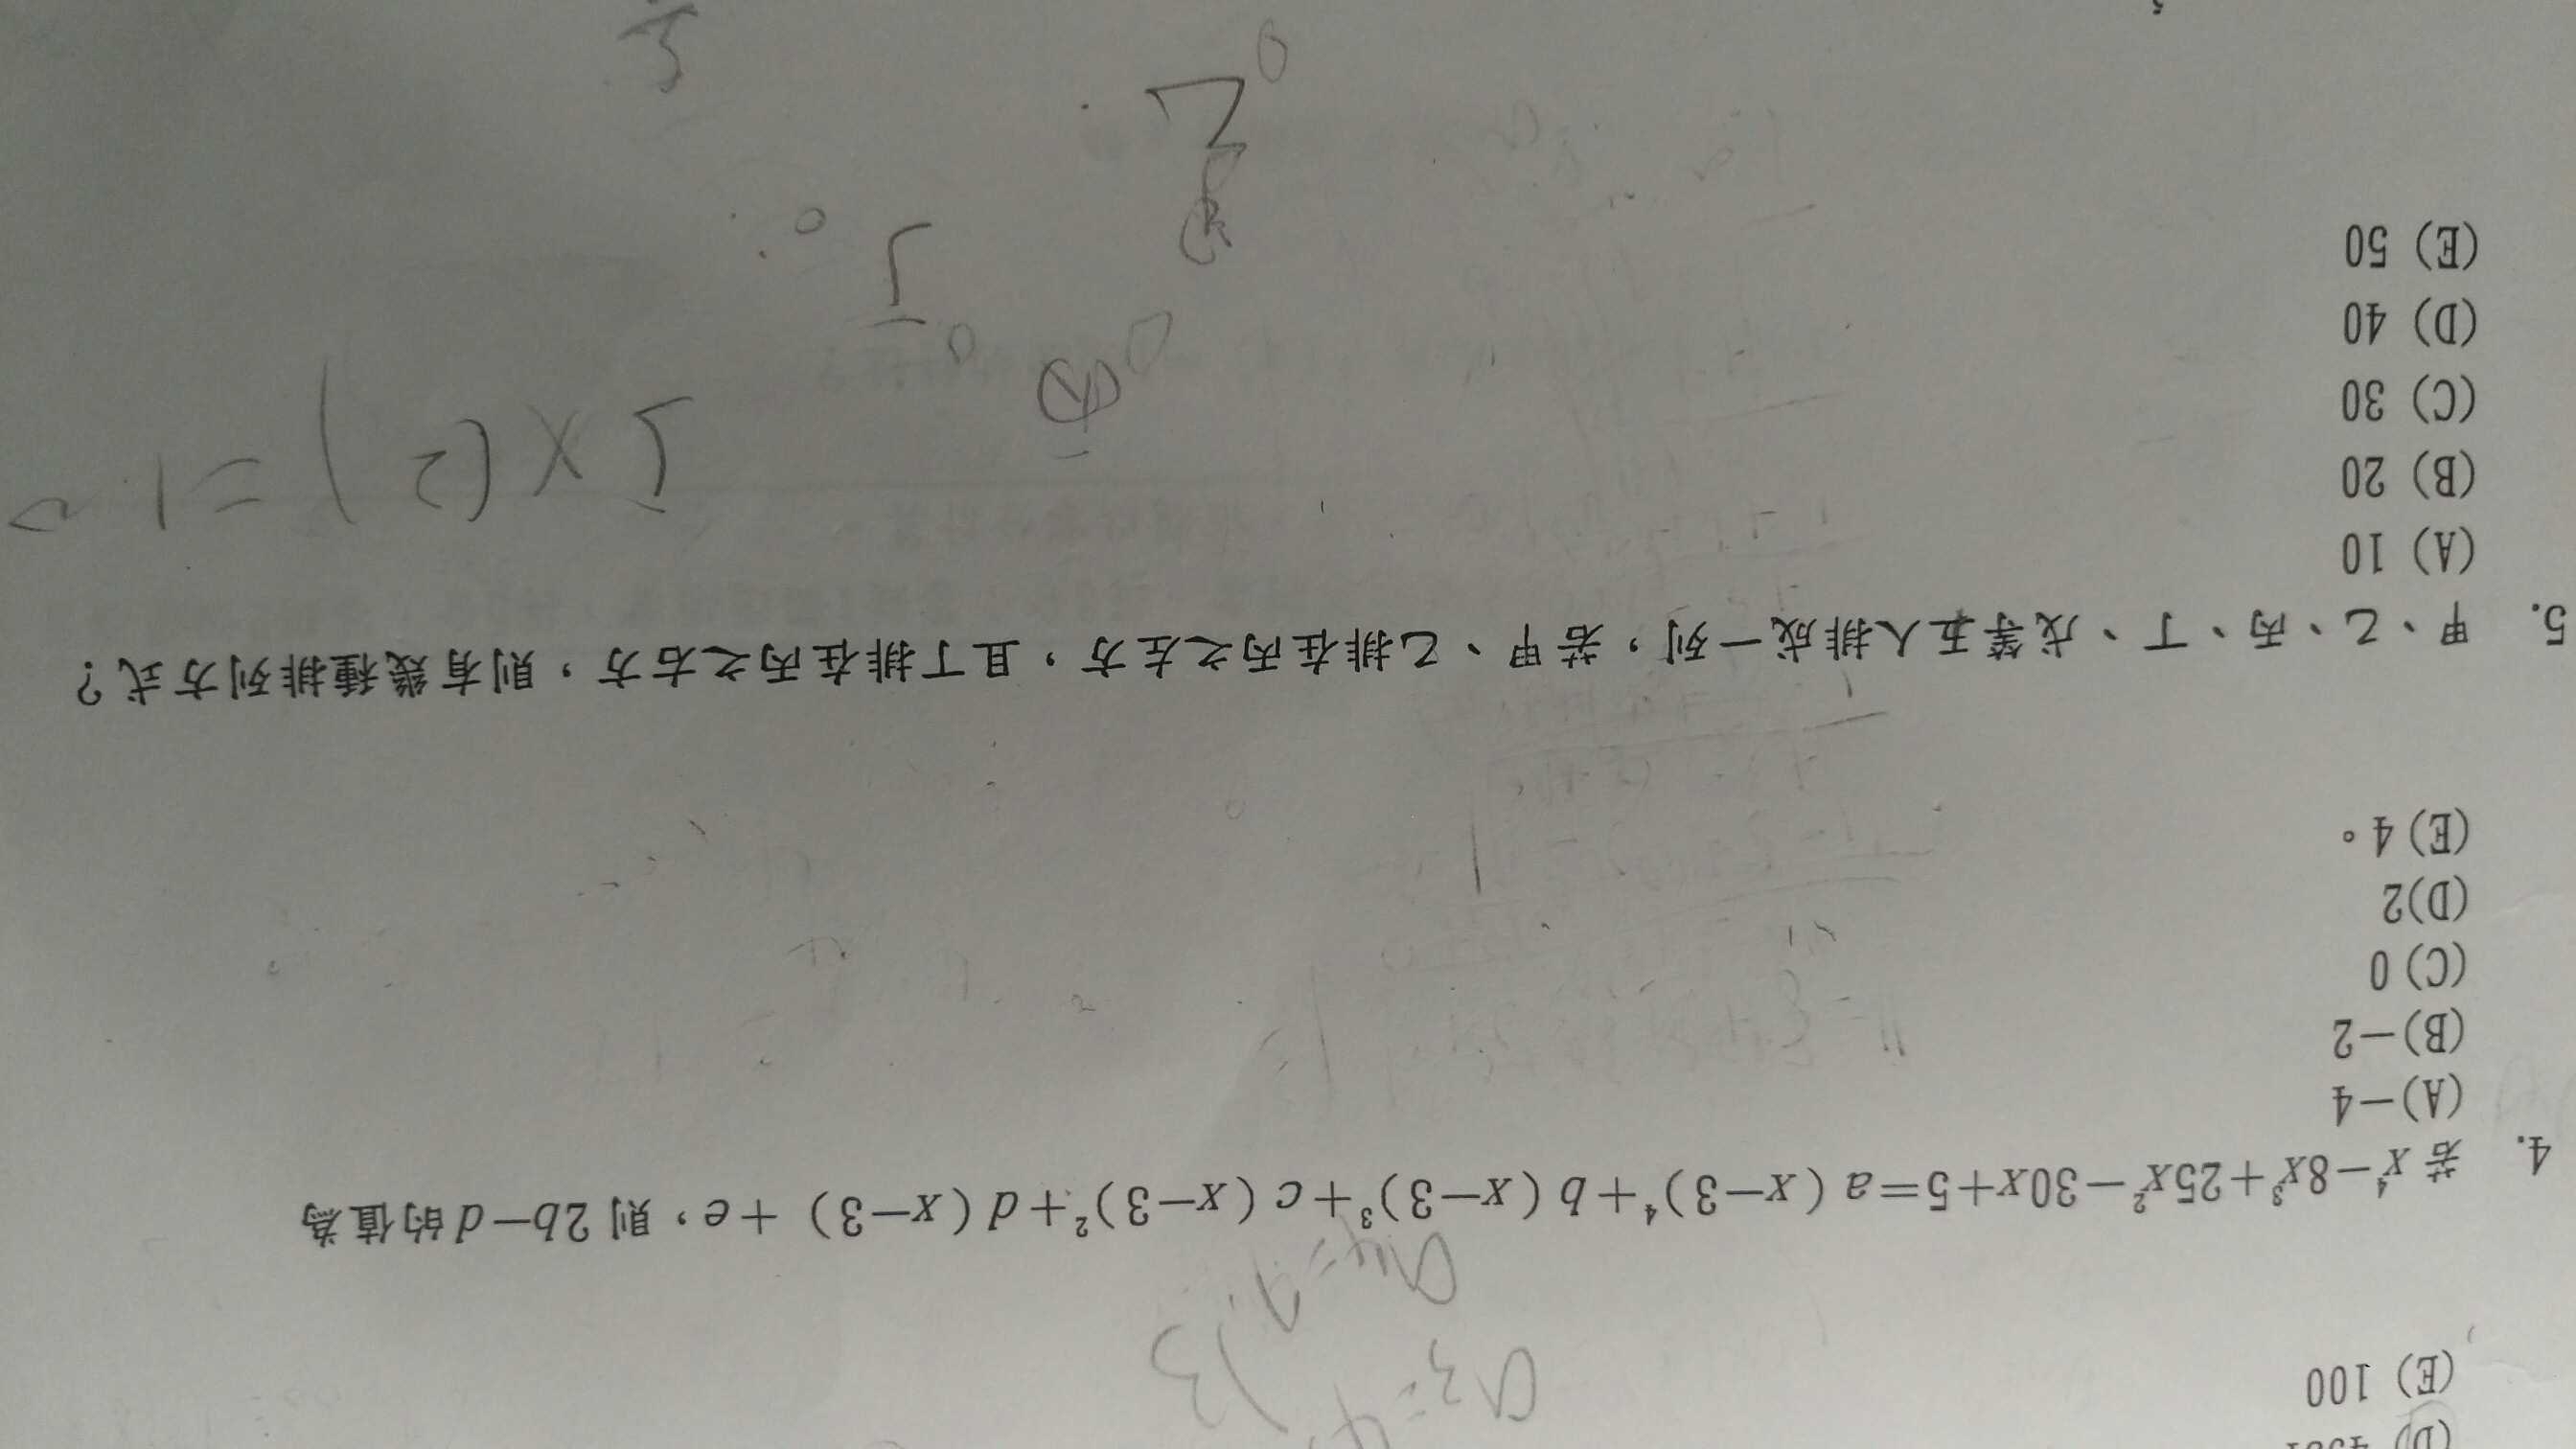 (E) 100
a3=4
4. 若 x⁴−8x³+25x²−30x+5=a（x−3）⁴+b（x−3）³+c（x−3）²+d（x−3）+e，則 2b−d 的值為
(A)−4
(B)−2
(C) 0
(D)2
(E) 4。
5. 甲、乙、丙、丁、戊等五人排成一列，若甲、乙排在丙之左方，且丁排在丙之右方，則有幾種排列方式？
(A) 10
(B) 20
(C) 30
(D) 40
(E) 50
5×(2)=10